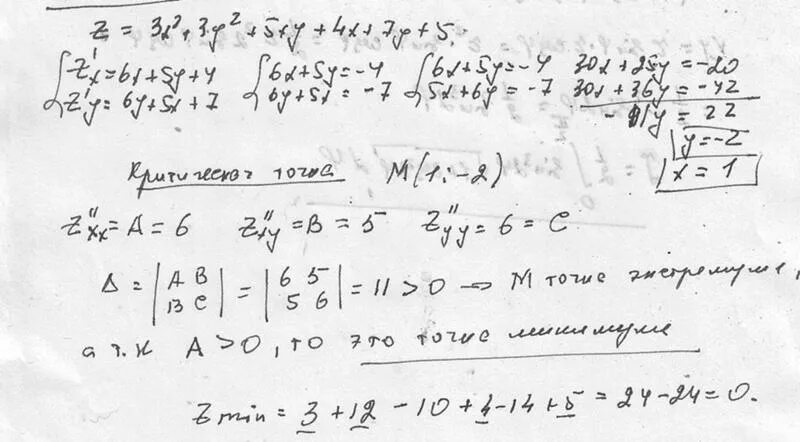 Z = 3x², 3y² + 5xy + 4x + 7y + 5.
{ Z'x = 6x + 5y + 4 { 6x + 5y = -4 { 6x + 5y = -4 30x + 25y = -20
Z'y = 6y + 5x + 7 6y + 5x = -7 5x + 6y = -7 30x + 36y = -42
- 11y = 22
y = -2
x = 1
Критическая точка M(1; -2)
Z''xx = A = 6 Z''xy = B = 5 Z''yy = 6 = C
Δ = |A B| = |6 5| = 11 > 0 → M точка экстремума,
|B C| |5 6|
а т.к A > 0, то это точка минимума
Zmin = 3 + 12 - 10 + 4 - 14 + 5 = 24 - 24 = 0.